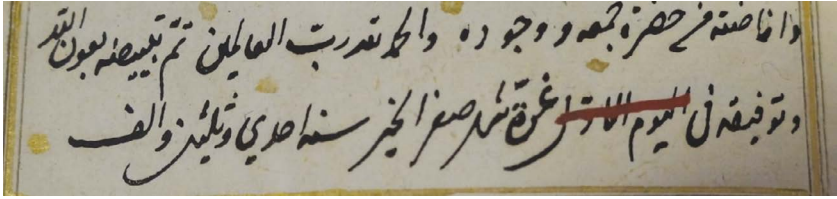 وافاضته في حضرة جمعه ووجوده والحمد لله رب العالمين تم تبييضه بعون الله
وتوفيقه في اليوم الاول غرة شهر صفر الخير سنه احدي وثلثين والف